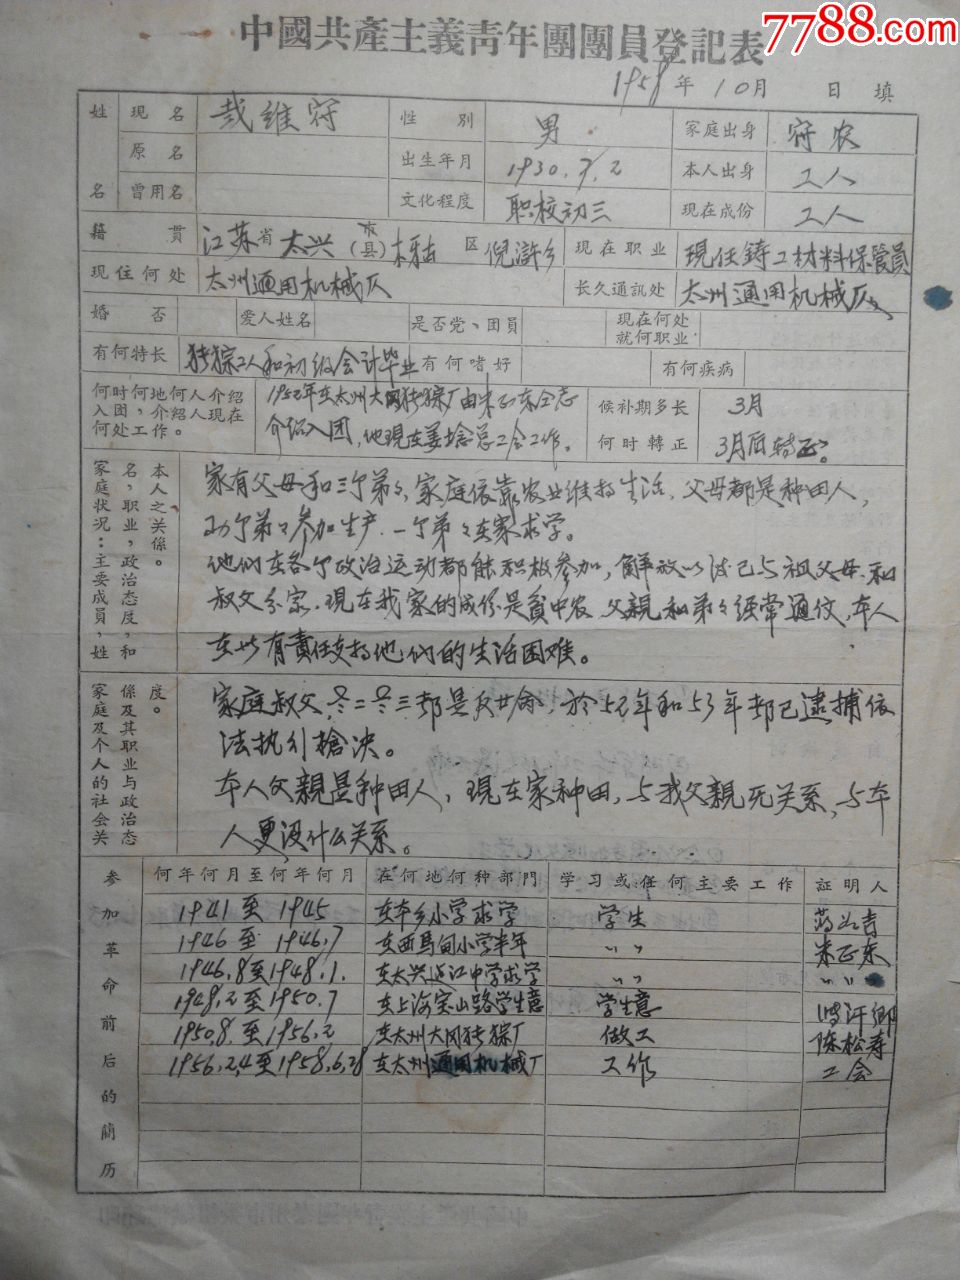 7788.com
中國共產主義靑年團團員登記表
1958年10月 日 填
姓名 現名 性別 男 家庭出身
原名 出生年月 1930.7.2 本人出身 工人
曾用名 文化程度 职校初三 現在成份 工人
籍貫 江苏省 太兴 市(县) 区 倪浒乡 現在职业 現任鋳工材料保管員
現住何处 太州通用机械厂 長久通訊处 太州通用机械厂
婚否 爱人姓名 是否党、团員 現在何处就何职业
有何特长 工人和初级会计毕业 有何嗜好 有何疾病
何时何地何人介紹入团，介紹人現在何处工作。
年在太州大冈 厂由朱正东仝志
介绍入团，他現在姜埝总工会工作。
候补期多长 3月
何时轉正 3月后轉正。
家庭状况：主要成員，姓名，职业，政治态度，和本人之关係。
家有父母和三个弟々，家庭依靠农业维持生活，父母都是种田人，
功个弟々参加生产，一个弟々在家求学。
他们在各个政治运动都能积极参加，解放以 已与祖父母和
叔父分家，現在我家的成份是貧中农，父親和弟々经常通 ，本人
在此有責任支持他们的生活困难。
家庭及个人的社会关係及其职业与政治态度。
家庭叔父 二 三都是反 命 於52年和53年都已逮捕依
法执行槍决。
本人父親是种田人，現在家种田，与我父親无关系，与本
人更没什么关系。
参加革命前后的简历
何年何月至何年何月 在何地何种部門 学习或任何主要工作 証明人
1941至1945 在本乡小学求学 学生
1946至1946.7 在西馬甸小学半年 〃 朱正东
1946.8至1948.1. 在太兴 江中学求学 〃 〃
1948.2至1950.7 在上海宝山路学生意 学生意
1950.8至1956.2 在太州大冈 厂 做工 陈松寿
1956.2.4至1958.6.28 在太州通用机械厂 工作 工会